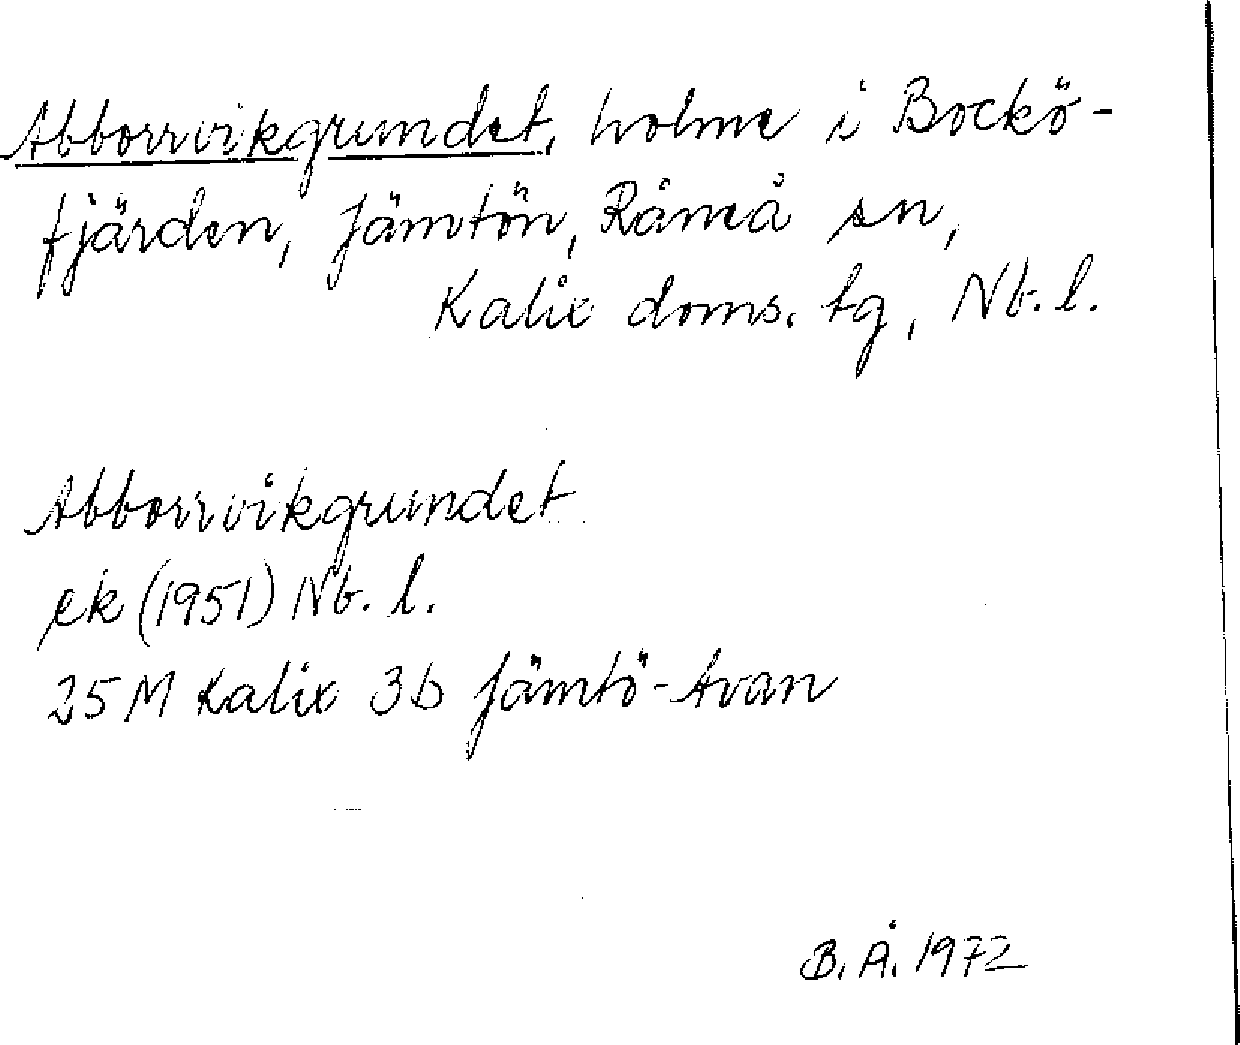 Abborrvikgrundet, holme i Bockö-
fjärden, Jämtön, Råneå sn,
Kalix doms. tg, Nb. l.
Abborrvikgrundet
ek (1951) Nb. l.
25 M Kalix 3b Jämtö-Avan
B. Å. 1972